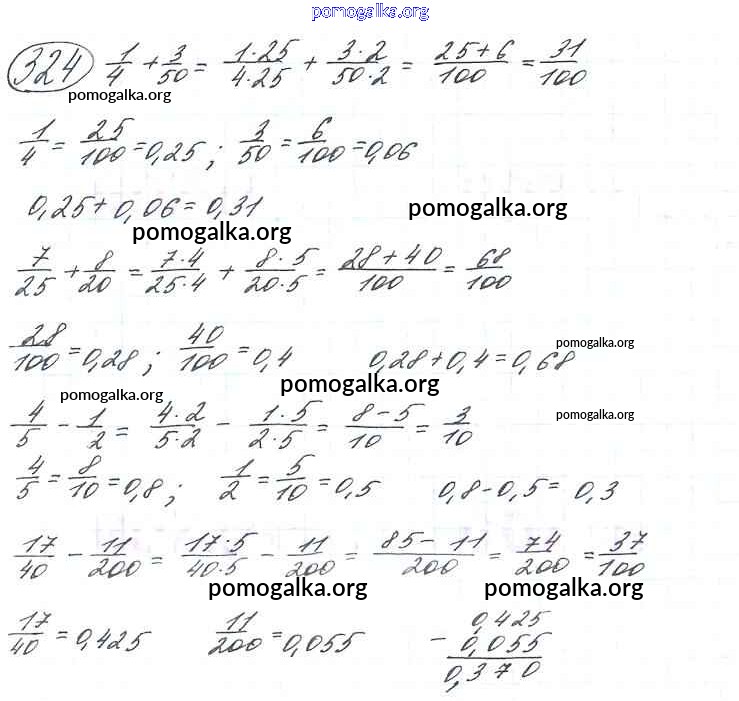 pomogalka.org
324 1/4 + 3/50 = 1·25/4·25 + 3·2/50·2 = 25+6/100 = 31/100
pomogalka.org
1/4 = 25/100 = 0,25 ; 3/50 = 6/100 = 0,06
0,25 + 0,06 = 0,31
pomogalka.org
pomogalka.org
7/25 + 8/20 = 7·4/25·4 + 8·5/20·5 = 28+40/100 = 68/100
28/100 = 0,28 ; 40/100 = 0,4 0,28 + 0,4 = 0,68
pomogalka.org
pomogalka.org
pomogalka.org
pomogalka.org
4/5 - 1/2 = 4·2/5·2 - 1·5/2·5 = 8-5/10 = 3/10
4/5 = 8/10 = 0,8 ; 1/2 = 5/10 = 0,5 0,8 - 0,5 = 0,3
17/40 - 11/200 = 17·5/40·5 - 11/200 = 85-11/200 = 74/200 = 37/100
pomogalka.org pomogalka.org
17/40 = 0,425 11/200 = 0,055
0,425
- 0,055
0,370